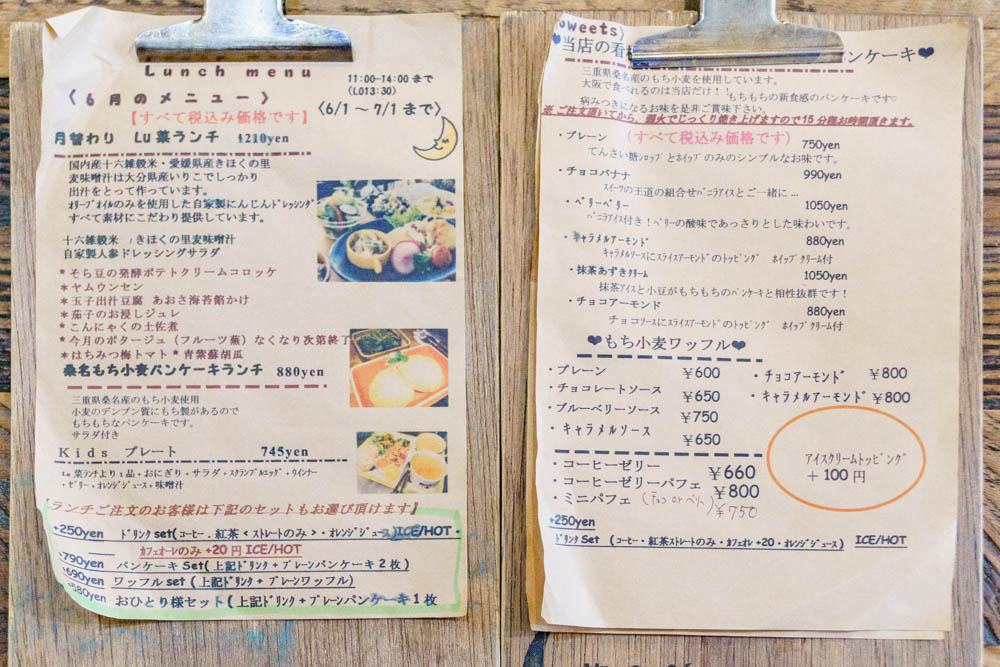 Lunch menu
11:00-14:00 まで
(LO13:30)
〈6月のメニュー〉
(6/1～7/1まで)
【すべて税込み価格です】
月替わり Lu菜ランチ 1210yen
国内産十六雑穀米・愛媛県産きほくの里
麦味噌汁は大分県産いりこでしっかり
出汁をとって作っています。
ｵﾘｰﾌﾞｵｲﾙのみを使用した自家製にんじんﾄﾞﾚｯｼﾝｸﾞ
すべて素材にこだわり提供しています。
十六雑穀米 /きほくの里麦味噌汁
自家製人参ドレッシングサラダ
*そら豆の発酵ポテトクリームコロッケ
*ヤムウンセン
*玉子出汁豆腐 あおさ海苔餡かけ
*茄子のお浸しジュレ
*こんにゃくの土佐煮
*今月のポタージュ（フルーツ蕪）なくなり次第終了
*はちみつ梅トマト*青紫蘇胡瓜
桑名もち小麦パンケーキランチ 880yen
三重県桑名産のもち小麦使用
小麦のデンプン質にもち製があるので
もちもちなパンケーキです。
サラダ付き
Kids プレート 745yen
Lu 菜ランチより1品+おにぎり+サラダ+ｽｸﾗﾝﾌﾞﾙｴｯｸﾞ+ウインナー
+ゼリー+ｵﾚﾝｼﾞｼﾞｭｰｽ+味噌汁
【ランチご注文のお客様は下記のセットもお選び頂けます】
+250yen ﾄﾞﾘﾝｸ set(ｺｰﾋｰ.紅茶<ストレートのみ>・ｵﾚﾝｼﾞｼﾞｭｰｽ)ICE/HOT
ｶﾌｪｵｰﾚのみ+20円 ICE/HOT
+790yen パンケーキ Set(上記ﾄﾞﾘﾝｸ+ﾌﾟﾚｰﾝパンケーキ2枚)
+690yen ワッフル set (上記ﾄﾞﾘﾝｸ+ﾌﾟﾚｰﾝワッフル)
+580yen おひとり様セット(上記ﾄﾞﾘﾝｸ+ﾌﾟﾚｰﾝパンケーキ1枚
sweets)
❤当店の看 ンケーキ❤
三重県桑名産のもち小麦を使用しています。
大阪で食べれるのは当店だけ！！もちもちの新食感のパンケーキです♡
病みつきになるお味を是非ご賞味下さい。
※ご注文頂いてから、弱火でじっくり焼き上げますので15分程お時間頂きます。
・プレーン (すべて税込み価格です) 750yen
てんさい糖ｼﾛｯﾌﾟとﾎｲｯﾌﾟのみのシンプルなお味です。
・チョコバナナ 990yen
ｽｲｰﾂの王道の組合せﾊﾞﾆﾗｱｲｽとご一緒に…
・ベリーベリー 1050yen
ﾊﾞﾆﾗｱｲｽ付き！ﾍﾞﾘｰの酸味であっさりとした味わいです。
・ｷｬﾗﾒﾙアーモンド 880yen
ｷｬﾗﾒﾙソースにｽﾗｲｽアーモンドのトッピング ホイップクリーム付
・抹茶あずきｸﾘｰﾑ 1050yen
抹茶ｱｲｽと小豆がもちもちのﾊﾟﾝｹｰｷと相性抜群です！
・チョコアーモンド 880yen
チョコソースにｽﾗｲｽアーモンドのトッピング ホイップクリーム付
❤もち小麦ワッフル❤
・プレーン ￥600
・チョコレートソース ￥650
・ブルーベリーソース ￥750
・キャラメルソース ￥650
・チョコアーモンド ￥800
・キャラメルアーモンド ￥800
ｱｲｽｸﾘｰﾑﾄｯﾋﾟﾝｸﾞ
+100円
・コーヒーゼリー ￥660
・コーヒーゼリーパフェ ￥800
・ミニパフェ (チョコ or ベリー) ￥750
+250yen
ﾄﾞﾘﾝｸ Set (ｺｰﾋｰ・紅茶ストレートのみ・ｶﾌｪｵﾚ+20・ｵﾚﾝｼﾞｼﾞｭｰｽ) ICE/HOT